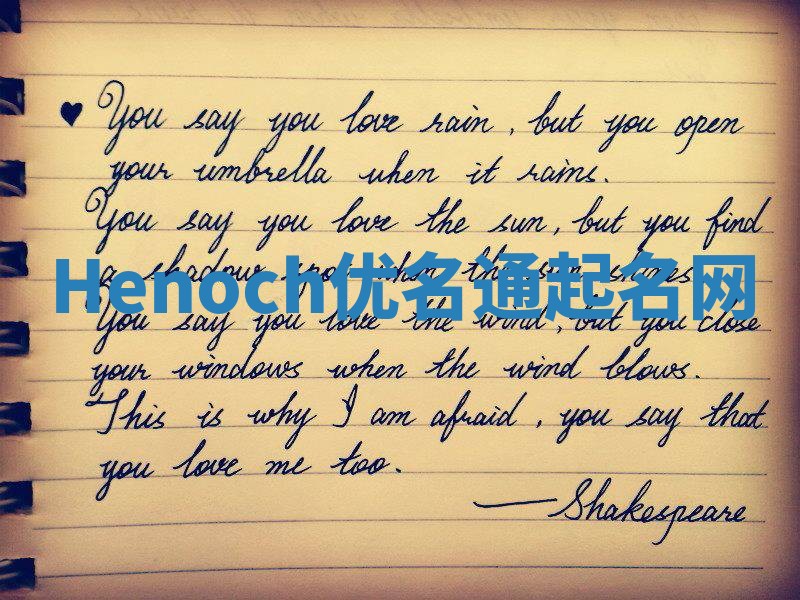 ♥ You say you love rain, but you open
your umbrella when it rains.
You say you love the sun, but you find
a shadow spot when the sun shines.
Henoch优名通起名网
You say you love the wind, but you close
your windows when the wind blows.
This is why I am afraid, you say that
you love me too.
—Shakespeare